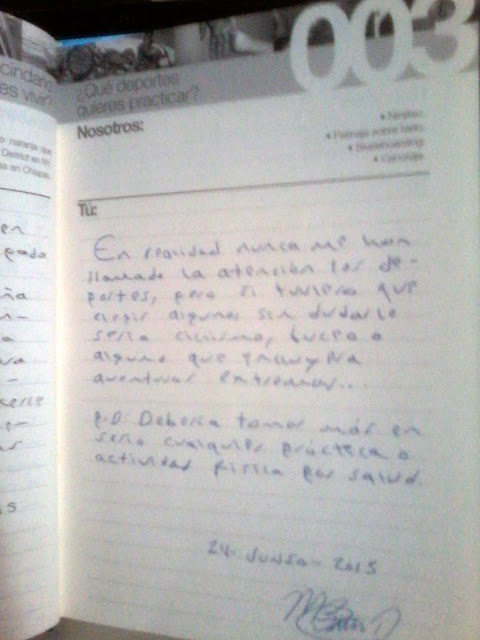 003
¿Qué deportes
quieres practicar?
Nosotros:
Patinaje sobre hielo
Skateboarding
Canotaje
Tú:
En realidad nunca me han
llamado la atención los de-
portes, pero si tuviera que
elegir algunos sin dudarlo
seria ciclismo, buceo o
alguno que incluya
aventuras extremas...
P.D Deberia tomar más en
serio cualquier práctica o
actividad física por salud.
24. Junio - 2015